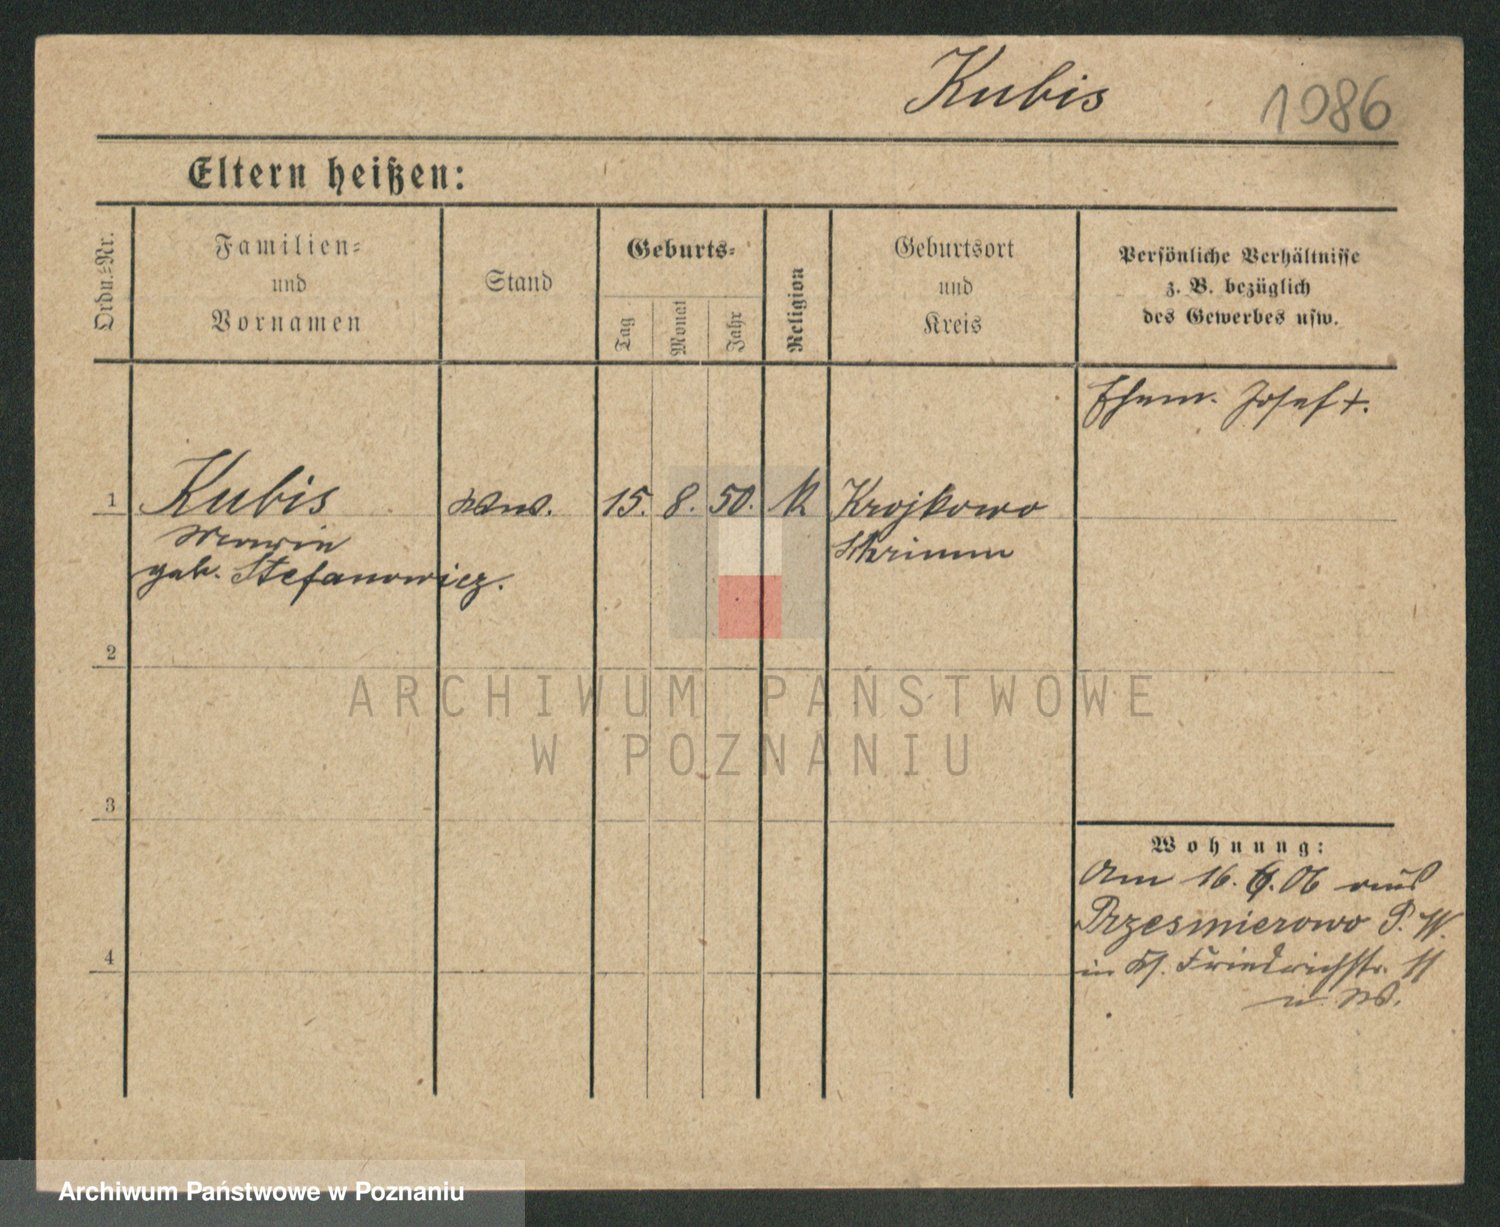 Kubis
1086
Eltern heißen:
Ordn.=Nr.
Familien=
und
Vornamen
Stand
Geburts=
Tag
Monat
Jahr
Religion
Geburtsort
und
Kreis
Persönliche Verhältnisse
z. B. bezüglich
des Gewerbes usw.
Ehem. Josef †.
1
Kubis
Wwe.
15.
8.
50.
k
Krojkowo
Marie
Schrimm
geb. Stefanowicz.
2
ARCHIWUM PAŃSTWOWE
W POZNANIU
3
Wohnung:
Am 16. 6. 06 aus
Przesmierowo P. W.
4
in Kl. Friedrichstr. 11
Archiwum Państwowe w Poznaniu